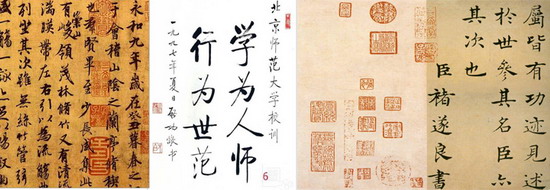 永和九年歲在癸丑暮春之
于會稽山陰之蘭亭脩稧
也羣賢畢至少長咸集
有峻領茂林脩竹又有清流
湍暎帶左右引以為流觴
列坐其次雖無絲竹管弦
一觴一詠亦足以暢叙
北京师范大学校训
学为人师
行为世范
一九九七年夏日启功敬书
6
屬皆有功迹見述
於世參其名臣亦
其次也
臣褚遂良書